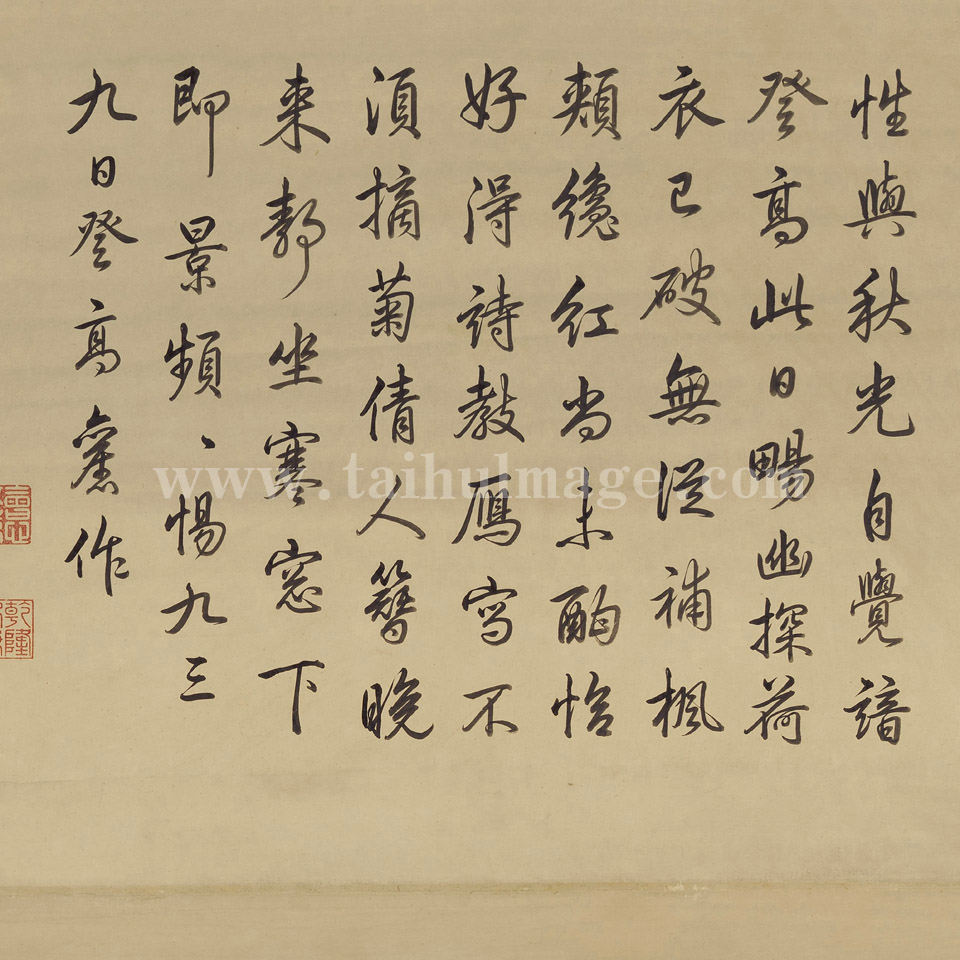 性與秋光自覺諳
登高此日暢幽探荷
衣已破無從補楓
頰纔紅尚未酣恰
好得詩教鴈寫不
須摘菊倩人簪晚
來靜坐寒窓下
即景頻、惕九三
九日登高舊作
乾隆
www.taihuImage.com